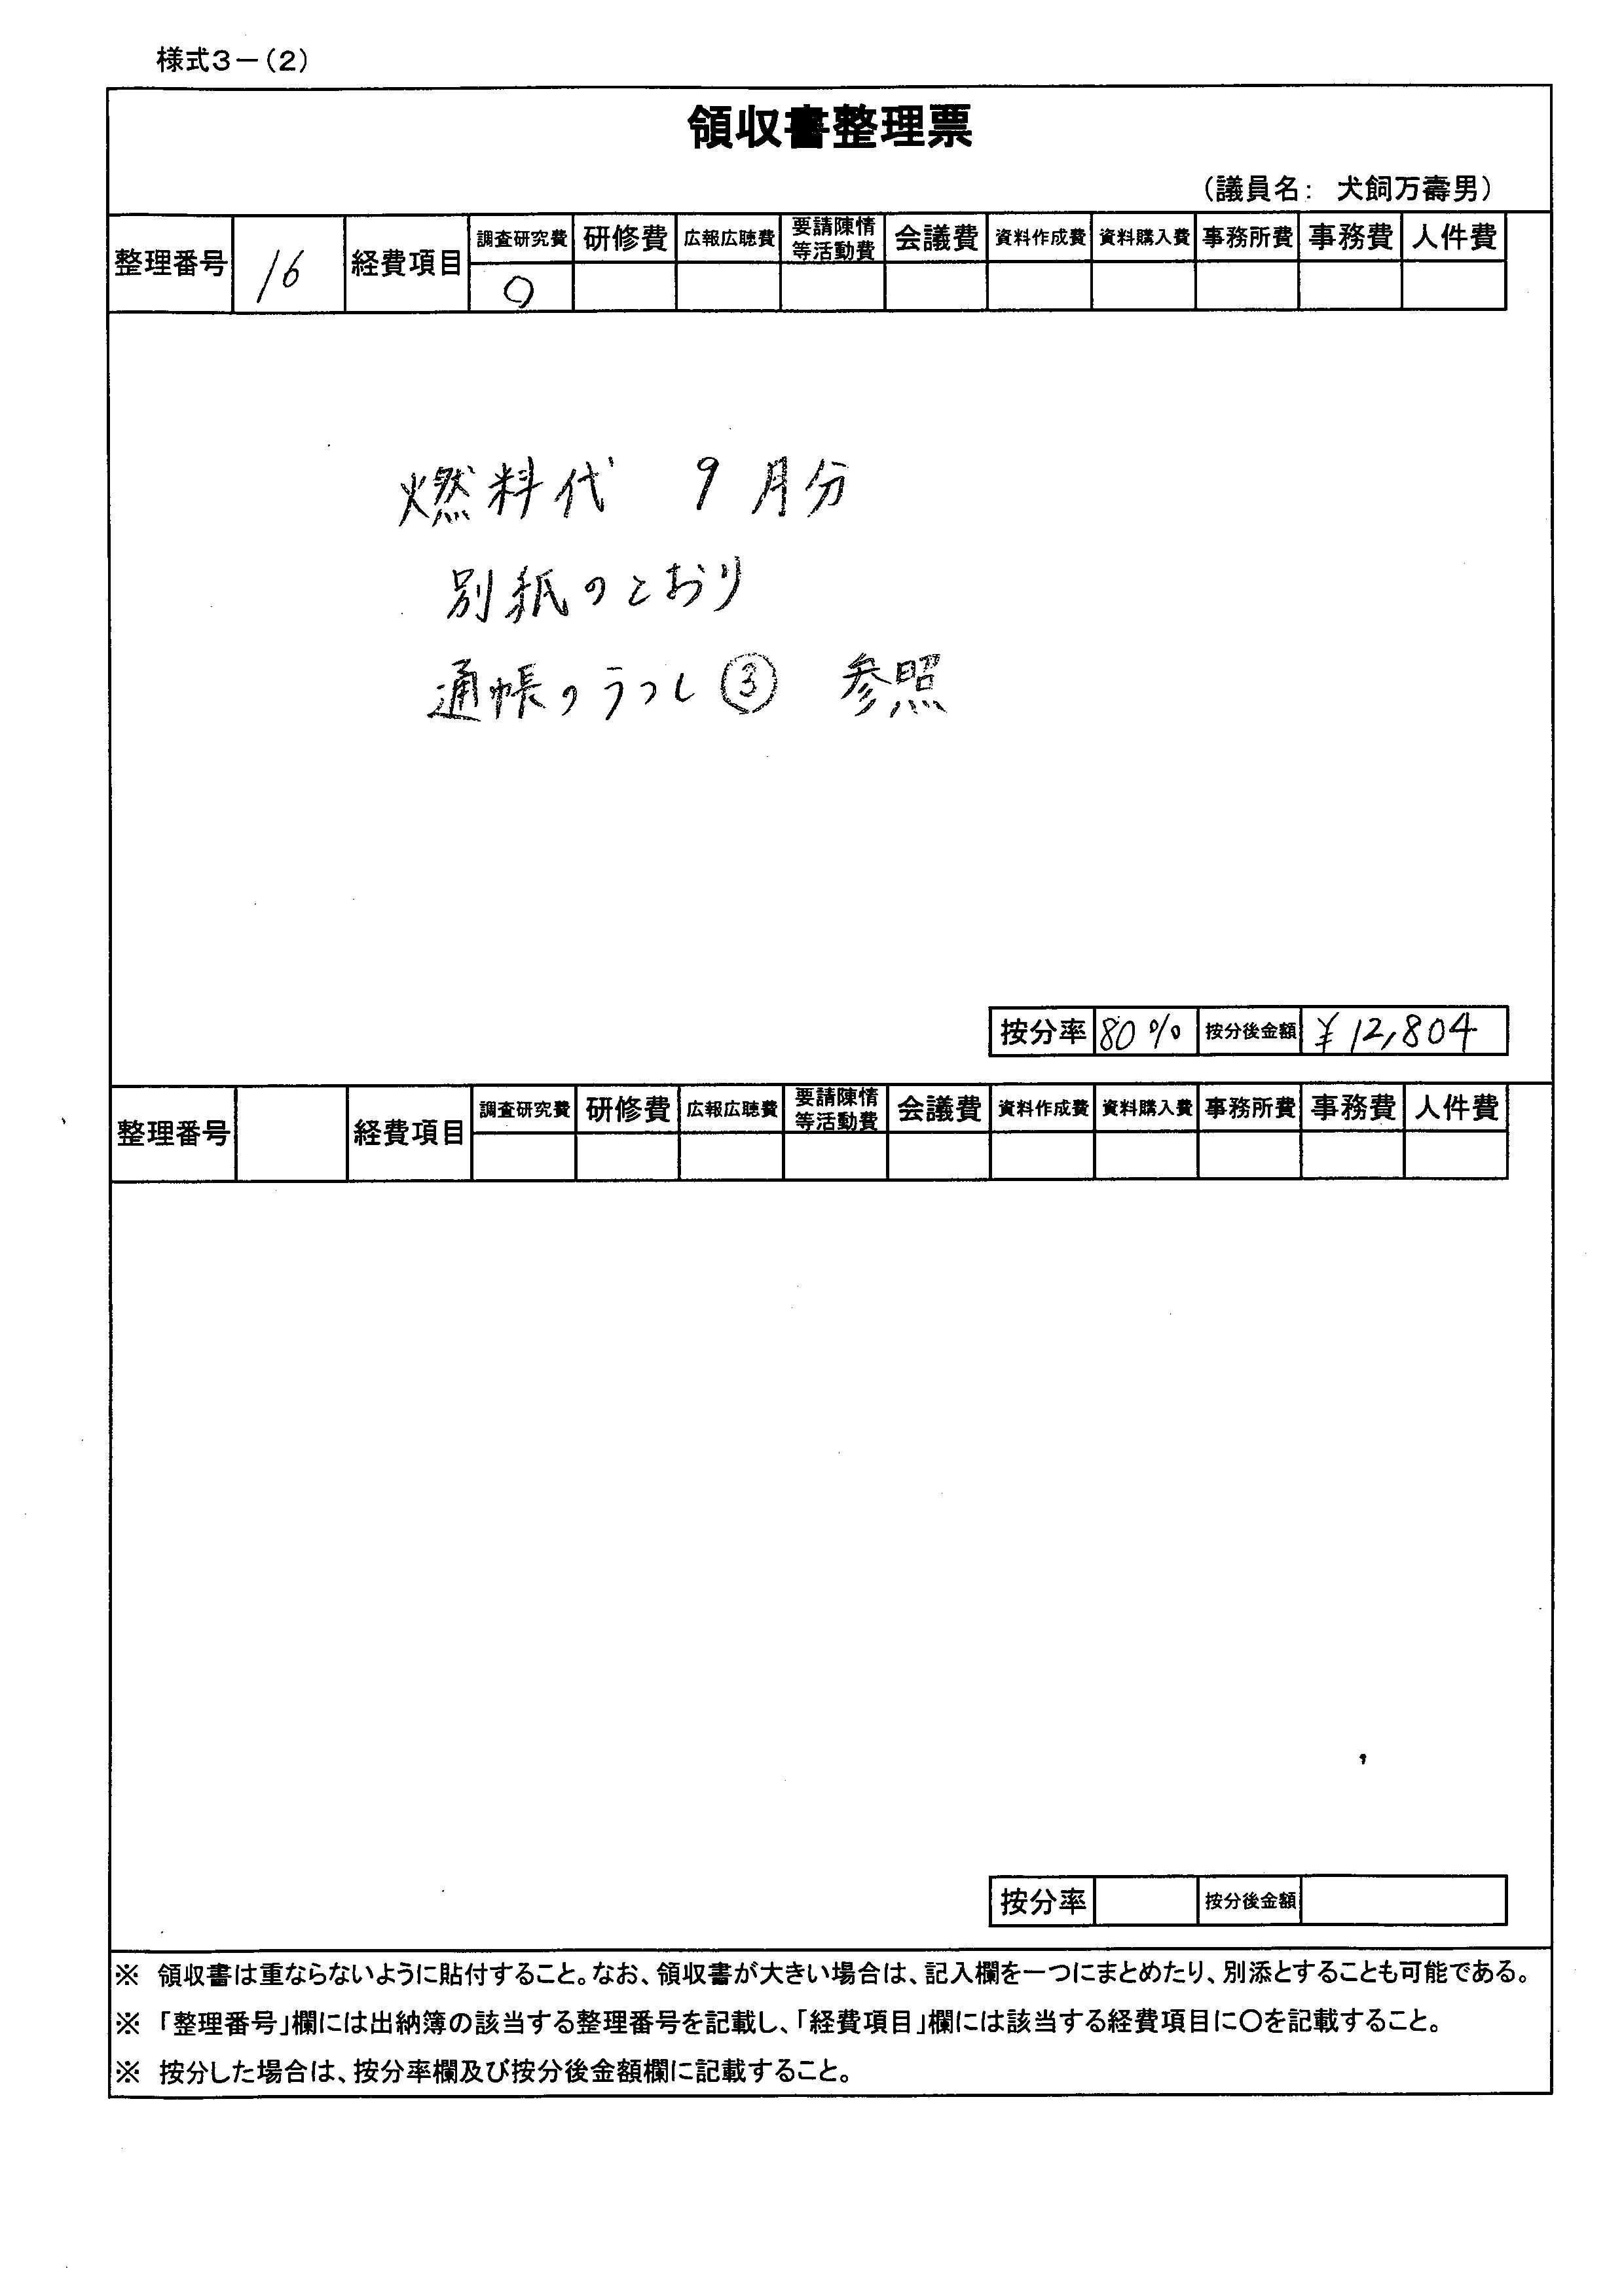 様式3－(2)
領収書整理票
(議員名： 犬飼万壽男)
整理番号 16 経費項目 調査研究費 研修費 広報広聴費 要請陳情等活動費 会議費 資料作成費 資料購入費 事務所費 事務費 人件費
○
燃料代 9月分
別紙のとおり
通帳のうつし③ 参照
按分率 80% 按分後金額 ¥12,804
整理番号 経費項目 調査研究費 研修費 広報広聴費 要請陳情等活動費 会議費 資料作成費 資料購入費 事務所費 事務費 人件費
按分率 按分後金額
※ 領収書は重ならないように貼付すること。なお、領収書が大きい場合は、記入欄を一つにまとめたり、別添とすることも可能である。
※ 「整理番号」欄には出納簿の該当する整理番号を記載し、「経費項目」欄には該当する経費項目に○を記載すること。
※ 按分した場合は、按分率欄及び按分後金額欄に記載すること。